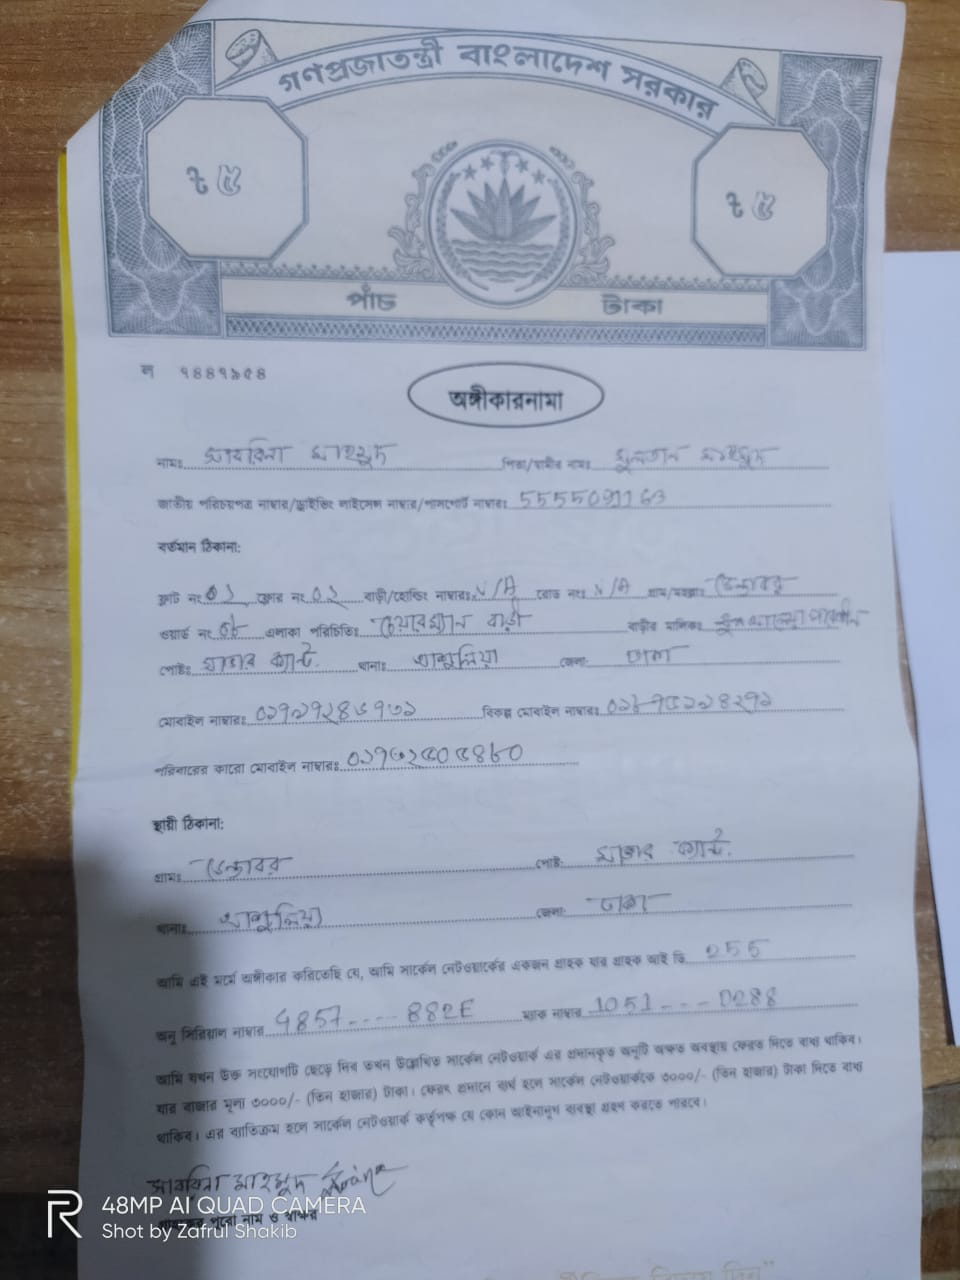 গণপ্রজাতন্ত্রী বাংলাদেশ সরকার
৳ ৫ ৳ ৫
পাঁচ টাকা
ল ৭৪৪৭৯৫৪
অঙ্গীকারনামা
নামঃ সাবরিনা মাহমুদ পিতা/স্বামীর নামঃ সুলতান মাহমুদ
জাতীয় পরিচয়পত্র নাম্বার/ড্রাইভিং লাইসেন্স নাম্বার/পাসপোর্ট নাম্বারঃ
বর্তমান ঠিকানা:
ফ্লাট নং ০১ ফ্লোর নং ০২ বাড়ী/হোল্ডিং নাম্বারঃ N/A রোড নংঃ N/A গ্রাম/মহল্লাঃ ডেন্ডাবর
ওয়ার্ড নং ০৮ এলাকা পরিচিতিঃ চেয়ারম্যান বাড়ী বাড়ীর মালিকঃ
পোষ্টঃ সাভার ক্যান্ট. থানাঃ আশুলিয়া জেলা: ঢাকা
মোবাইল নাম্বারঃ বিকল্প মোবাইল নাম্বারঃ
পরিবারের কারো মোবাইল নাম্বারঃ
স্থায়ী ঠিকানা:
গ্রামঃ ডেন্ডাবর পোষ্ট: সাভার ক্যান্ট.
থানাঃ আশুলিয়া জেলা: ঢাকা
আমি এই মর্মে অঙ্গীকার করিতেছি যে, আমি সার্কেল নেটওয়ার্কের একজন গ্রাহক যার গ্রাহক আই ডি 255
অনু সিরিয়াল নাম্বার 4857---- 882E ম্যাক নাম্বার 1051 --- D288
আমি যখন উক্ত সংযোগটি ছেড়ে দিব তখন উল্লেখিত সার্কেল নেটওয়ার্ক এর প্রদানকৃত অনুটি অক্ষত অবস্থায় ফেরত দিতে বাধ্য থাকিব।
যার বাজার মূল্য ৩০০০/- (তিন হাজার) টাকা। ফেরৎ প্রদানে ব্যর্থ হলে সার্কেল নেটওয়ার্ককে ৩০০০/- (তিন হাজার) টাকা দিতে বাধ্য
থাকিব। এর ব্যতিক্রম হলে সার্কেল নেটওয়ার্ক কর্তৃপক্ষ যে কোন আইনানুগ ব্যবস্থা গ্রহণ করতে পারবে।
সাবরিনা মাহমুদ
গ্রাহকের পুরো নাম ও স্বাক্ষর
48MP AI QUAD CAMERA
Shot by Zafrul Shakib